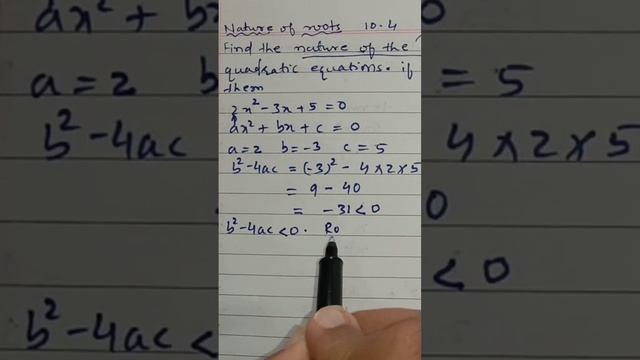 Nature of roots 10.4
Find the nature of the
quadratic equations. if
them
2x² - 3x + 5 = 0
ax² + bx + c = 0
a = 2 b = -3 c = 5
b² - 4ac = (-3)² - 4 × 2 × 5
= 9 - 40
= -31 < 0
b² - 4ac < 0. Ro
ax² +
a = 2 b
b² - 4ac
b² - 4ac <
= 5
4 × 2 × 5
< 0